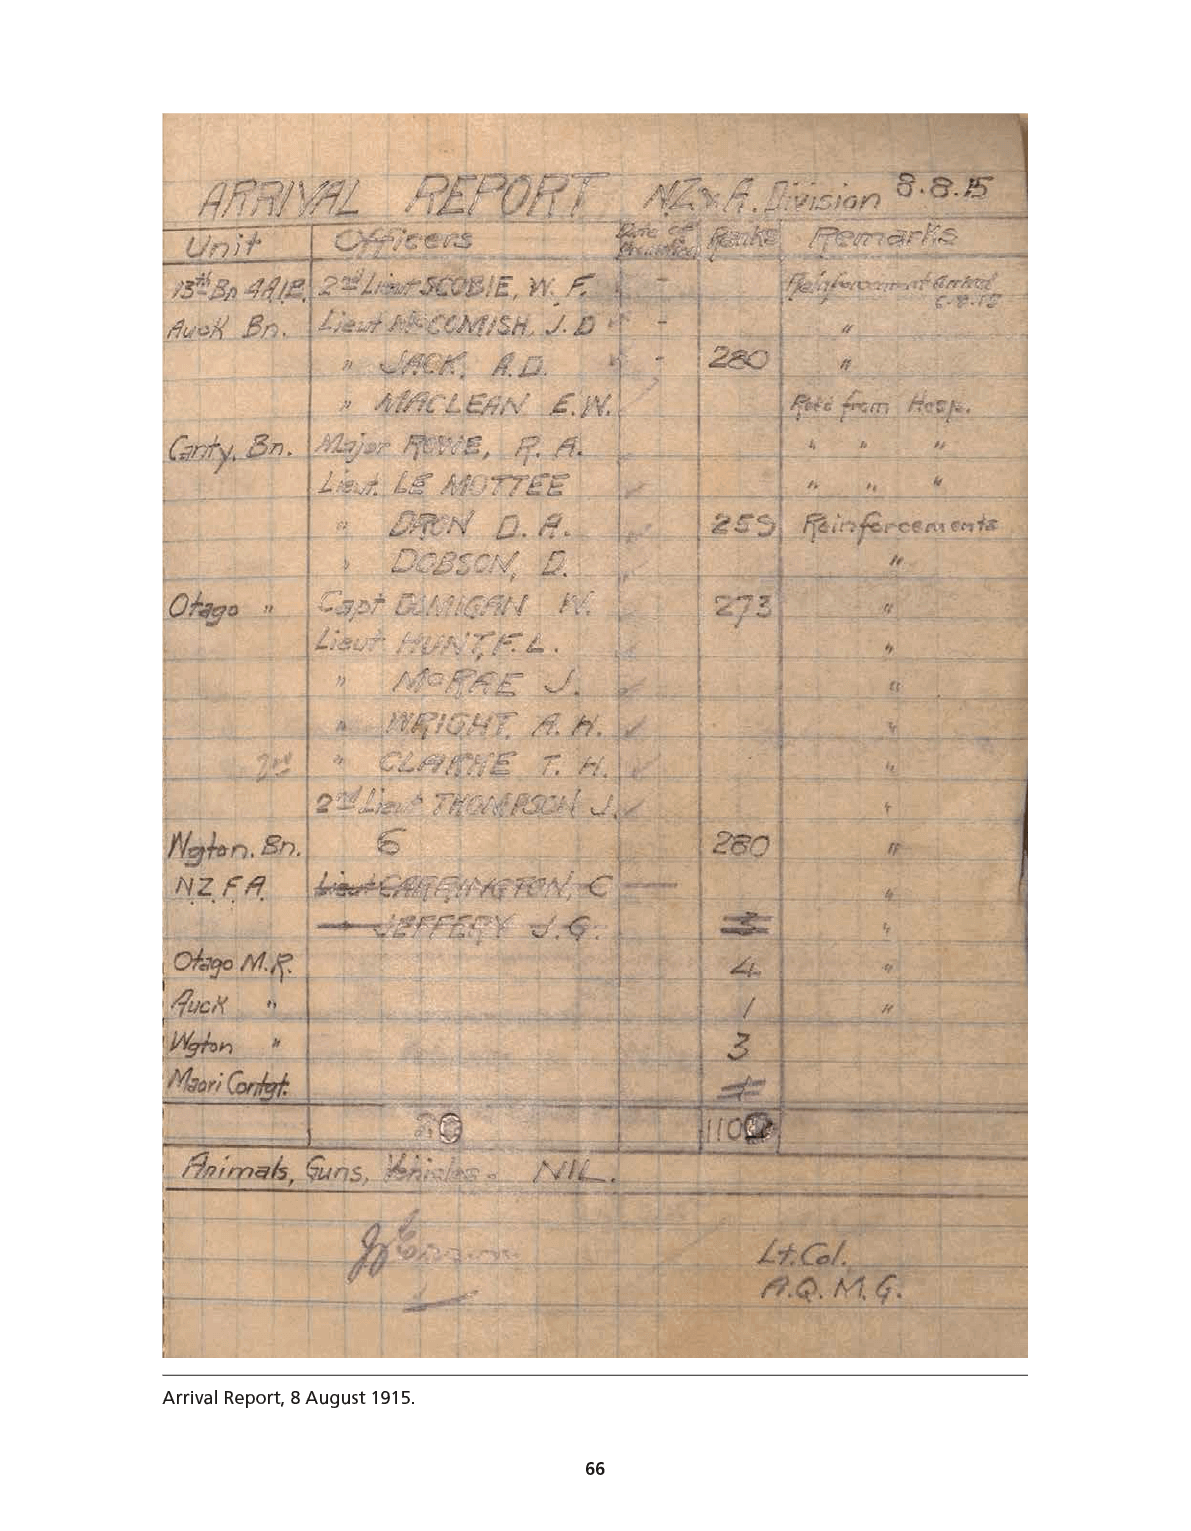 ARRIVAL REPORT N.Z. & A. Division 8.8.15
Unit Officers Date of Ranks Remarks
13th Bn 4 A.I.B. 2nd Lieut SCOBIE, W. F. - Reinforcement arrived 6.8.15
Auck Bn. Lieut McCOMISH, J. D - "
" JACK, A.D. - 280 "
" MACLEAN E.W. Retd from Hosp.
Canty. Bn. Major ROWE, R. A. " " "
Lieut. LE MOTTEE " " "
" DRON D. A. 259 Reinforcements
" DOBSON, D. "
Otago " Capt W. 273 "
Lieut HUNT, F. L. "
" McRAE J. "
" WRIGHT, A. H. "
" CLARKE T. H. "
2nd Lieut THOMPSON J. "
Wgton. Bn. 6 280 "
N.Z.F.A. Lieut CARRINGTON, C "
" JEFFERY J.G. "
Otago M.R. 4 "
Auck " 1 "
Wgton " 3
Maori Contgt.
Animals, Guns, Vehicles. NIL.
Lt. Col.
A.Q.M.G.
Arrival Report, 8 August 1915.
66